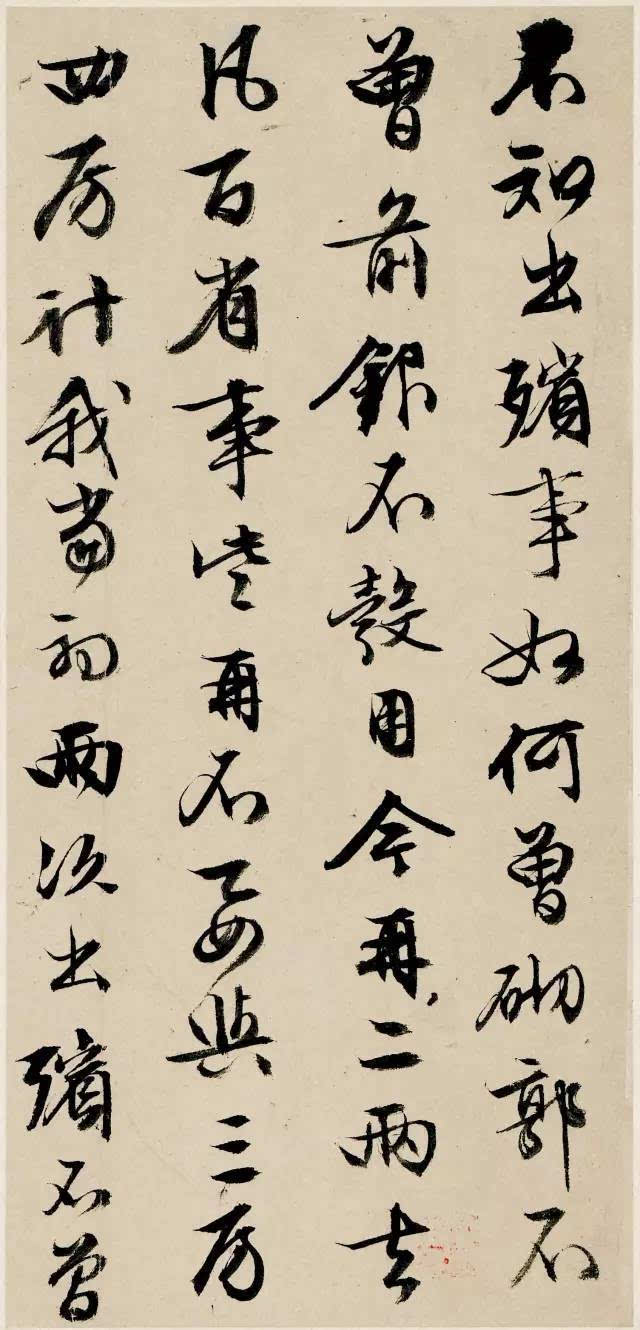 不知出殯事如何曾砌郭不
曾前銀不彀用今再二兩去
凡百省事些再不要與三房
四房计我當初兩次出殯不曾